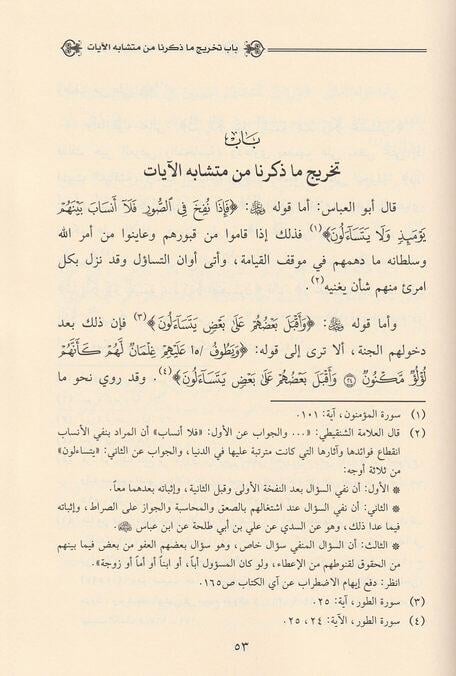 باب تخريج ما ذكرنا من متشابه الآيات
باب
تخريج ما ذكرنا من متشابه الآيات
قال أبو العباس: أما قوله ﷻ: ﴿فَإِذَا نُفِخَ فِي الصُّورِ فَلَا أَنسَابَ بَيْنَهُمْ
يَوْمَئِذٍ وَلَا يَتَسَاءَلُونَ﴾(١) فذلك إذا قاموا من قبورهم وعاينوا من أمر الله
وسلطانه ما دهمهم في موقف القيامة، وأتى أوان التساؤل وقد نزل بكل
امرئ منهم شأن يغنيه(٢).
وأما قوله ﷻ: ﴿وَأَقْبَلَ بَعْضُهُمْ عَلَى بَعْضٍ يَتَسَاءَلُونَ﴾(٣) فإن ذلك بعد
دخولهم الجنة، ألا ترى إلى قوله: ﴿وَيَطُوفُ /١٥ عَلَيْهِمْ غِلْمَانٌ لَّهُمْ كَأَنَّهُمْ
لُؤْلُؤٌ مَّكْنُونٌ ۝٢٤ وَأَقْبَلَ بَعْضُهُمْ عَلَى بَعْضٍ يَتَسَاءَلُونَ﴾(٤). وقد روي نحو ما
(١) سورة المؤمنون، آية: ١٠١.
(٢) قال العلامة الشنقيطي: «... والجواب عن الأول: «فلا أنساب» أن المراد بنفي الأنساب
انقطاع فوائدها وآثارها التي كانت مترتبة عليها في الدنيا، والجواب عن الثاني: «يتساءلون»
من ثلاثة أوجه:
* الأول: أن نفي السؤال بعد النفخة الأولى وقبل الثانية، وإثباته بعدهما معاً.
* الثاني: أن نفي السؤال عند اشتغالهم بالصعق والمحاسبة والجواز على الصراط، وإثباته
فيما عدا ذلك، وهو عن السدي عن علي بن أبي طلحة عن ابن عباس
* الثالث: أن السؤال المنفي سؤال خاص، وهو سؤال بعضهم العفو من بعض فيما بينهم
من الحقوق لقنوطهم من الإعطاء، ولو كان المسؤول أباً، أو ابناً أو أماً أو زوجة».
انظر: دفع إيهام الاضطراب عن آي الكتاب ص١٦٥.
(٣) سورة الطور، آية: ٢٥.
(٤) سورة الطور، الآية: ٢٤، ٢٥.
٥٣